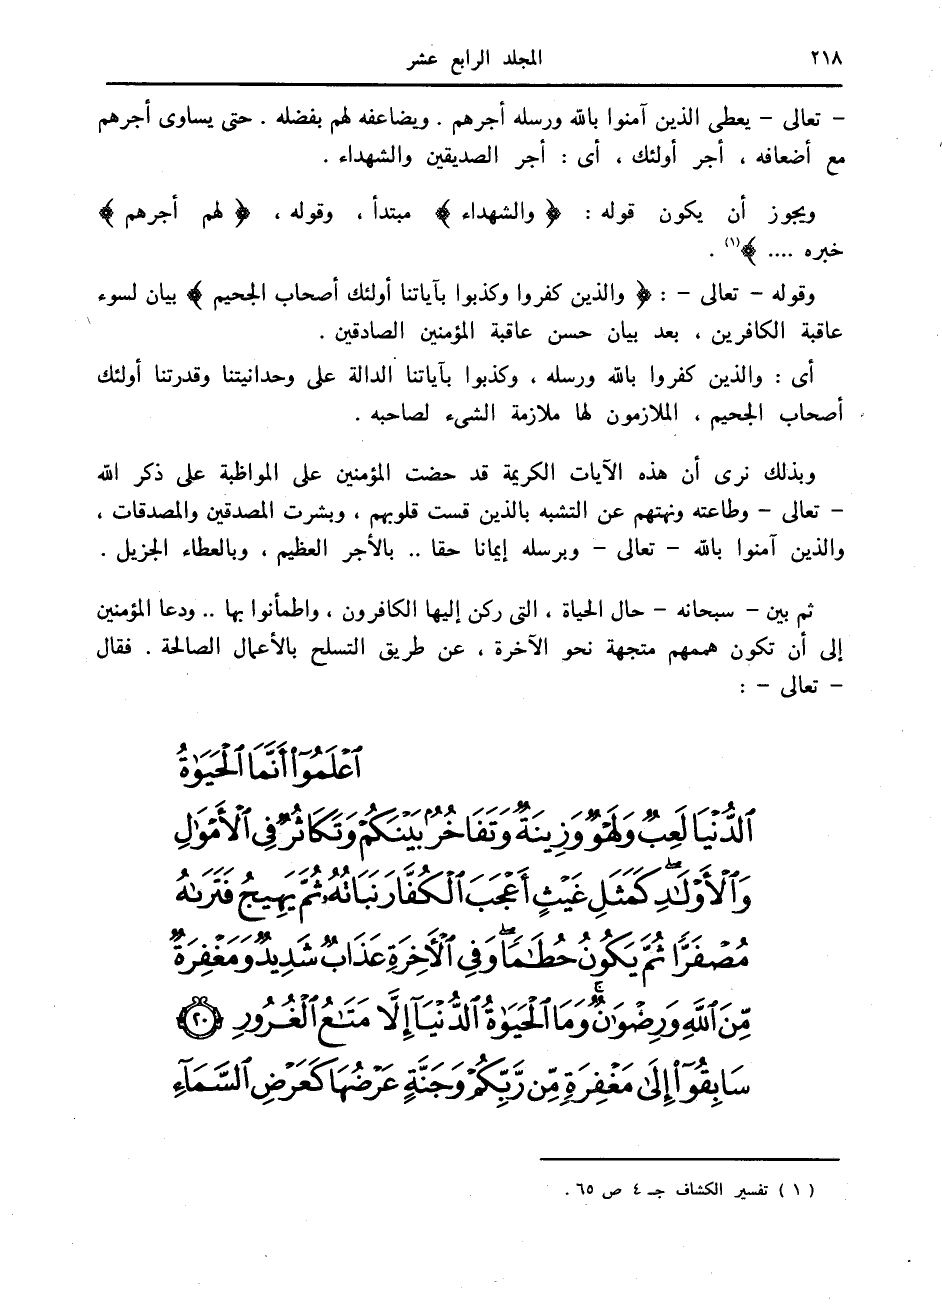 ٢١٨
المجلد الرابع عشر
– تعالى – يعطى الذين آمنوا بالله ورسله أجرهم . ويضاعفه لهم بفضله . حتى يساوى أجرهم
مع أضعافه ، أجر أولئك ، أى : أجر الصديقين والشهداء .
ويجوز أن يكون قوله : ﴿ والشهداء ﴾ مبتدأ ، وقوله ، ﴿ لهم أجرهم ﴾
خبره .... ﴾(١) .
وقوله – تعالى – : ﴿ والذين كفروا وكذبوا بآياتنا أولئك أصحاب الجحيم ﴾ بيان لسوء
عاقبة الكافرين ، بعد بيان حسن عاقبة المؤمنين الصادقين .
أى : والذين كفروا بالله ورسله ، وكذبوا بآياتنا الدالة على وحدانيتنا وقدرتنا أولئك
أصحاب الجحيم ، الملازمون لها ملازمة الشىء لصاحبه .
وبذلك نرى أن هذه الآيات الكريمة قد حضت المؤمنين على المواظبة على ذكر الله
– تعالى – وطاعته ونهتهم عن التشبه بالذين قست قلوبهم ، وبشرت المصدقين والمصدقات ،
والذين آمنوا بالله – تعالى – وبرسله إيمانا حقا .. بالأجر العظيم ، وبالعطاء الجزيل .
ثم بين – سبحانه – حال الحياة ، التى ركن إليها الكافرون ، واطمأنوا بها .. ودعا المؤمنين
إلى أن تكون هممهم متجهة نحو الآخرة ، عن طريق التسلح بالأعمال الصالحة . فقال
– تعالى – :
ٱعْلَمُوٓا۟ أَنَّمَا ٱلْحَيَوٰةُ
ٱلدُّنْيَا لَعِبٌ وَلَهْوٌ وَزِينَةٌ وَتَفَاخُرٌۢ بَيْنَكُمْ وَتَكَاثُرٌ فِى ٱلْأَمْوَٰلِ
وَٱلْأَوْلَـٰدِ ۖ كَمَثَلِ غَيْثٍ أَعْجَبَ ٱلْكُفَّارَ نَبَاتُهُۥ ثُمَّ يَهِيجُ فَتَرَىٰهُ
مُصْفَرًّا ثُمَّ يَكُونُ حُطَـٰمًا ۖ وَفِى ٱلْأَخِرَةِ عَذَابٌ شَدِيدٌ وَمَغْفِرَةٌ
مِّنَ ٱللَّهِ وَرِضْوَٰنٌ ۚ وَمَا ٱلْحَيَوٰةُ ٱلدُّنْيَآ إِلَّا مَتَـٰعُ ٱلْغُرُورِ ٢٠
سَابِقُوٓا۟ إِلَىٰ مَغْفِرَةٍ مِّن رَّبِّكُمْ وَجَنَّةٍ عَرْضُهَا كَعَرْضِ ٱلسَّمَآءِ
( ١ ) تفسير الكشاف جـ ٤ ص ٦٥ .